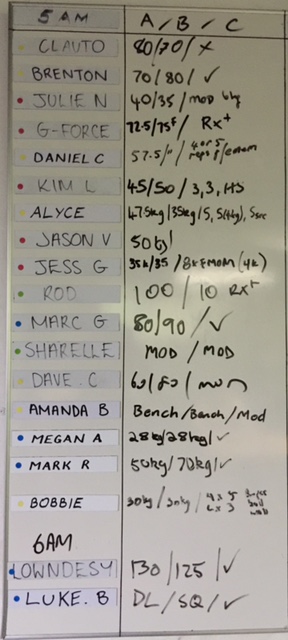 5 AM A / B / C
CLAUTO 80/70/ x
BRENTON 70/80/ ✓
JULIE N 40/35/ MOD
G-FORCE 72.5/75 / Rx+
DANIEL C 57.5/"/
KIM L 45/50/ 3,3, HS
ALYCE 47.5kg/35kg/5,
JASON V 50kg/
JESS G 35k/35/8kEMOM(4k)
ROD 100/10 RX+
MARC G 80/90/✓
SHARELLE MOD / MOD
DAVE.C 60/
AMANDA B Bench/Bench/Mod
MEGAN A 28kg/28kg/✓
MARK R 50kg/70kg/✓
BOBBIE 30kg/30kg/ 4 x 5
6AM
LOWNDESY 130/125/✓
LUKE.B DL/SQ/✓